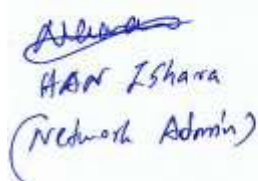 HAN Ishara
(Network Admin)